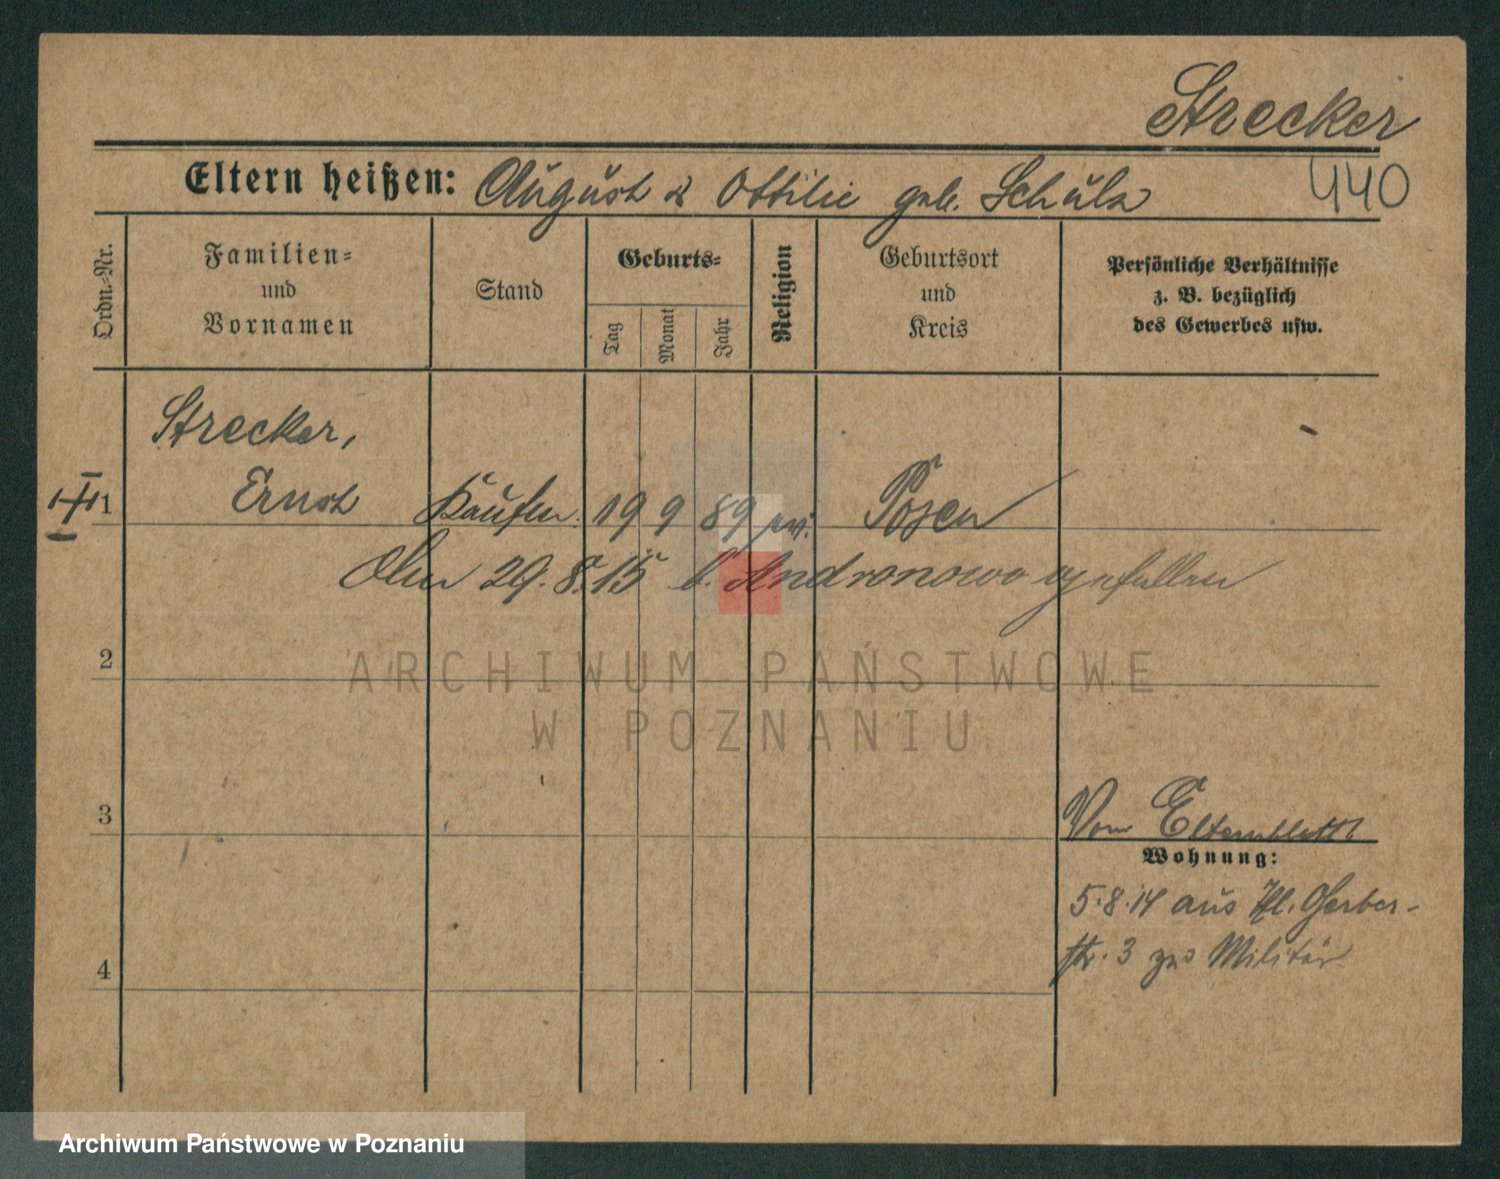 Strecker
440
Eltern heißen: August & Ottilie geb. Schulz
Ordn.-Nr.
Familien- und Vornamen
Stand
Geburts-
Tag
Monat
Jahr
Religion
Geburtsort und Kreis
Persönliche Verhältnisse
z. B. bezüglich
des Gewerbes usw.
Strecker,
1 Ernst Kaufm. 19 9 89 ev. Posen
Am 29.8.15 b. Andronowo gefallen
2
ARCHIWUM PAŃSTWOWE
W POZNANIU
3
Vom Elternblatt
Wohnung:
5.8.14 aus Kl. Gerber-
str. 3 zum Militär
4
Archiwum Państwowe w Poznaniu